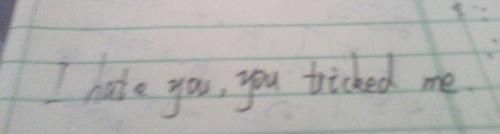 I hate you, you tricked me.